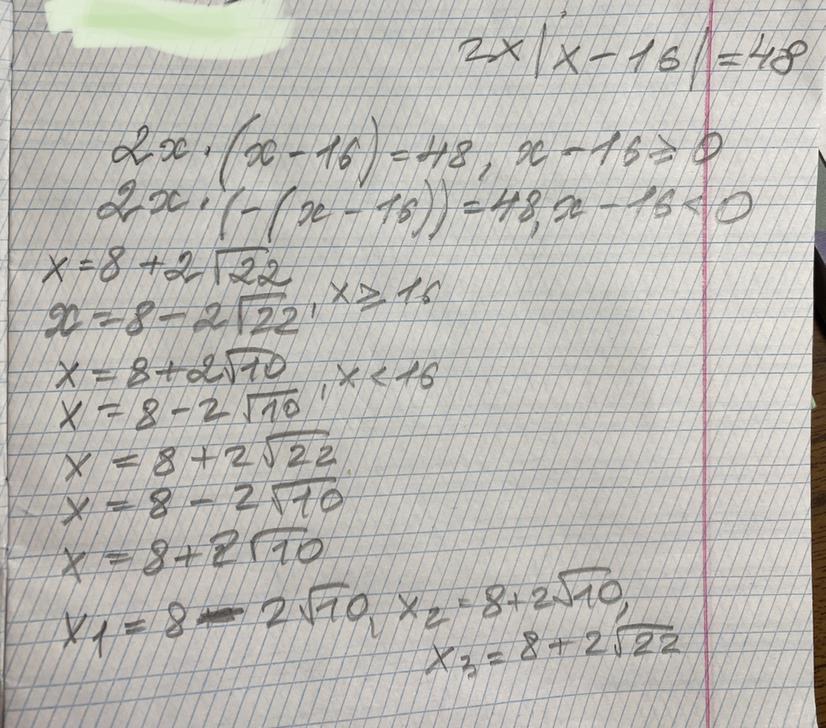 2x|x-16|=48
2x·(x-16)=48, x-16≥0
2x·(-(x-16))=48, x-16<0
x=8+2√22
x=8-2√22, x≥16
x=8+2√10
x=8-2√10, x<16
x=8+2√22
x=8-2√10
x=8+2√10
x₁=8-2√10, x₂=8+2√10,
x₃=8+2√22